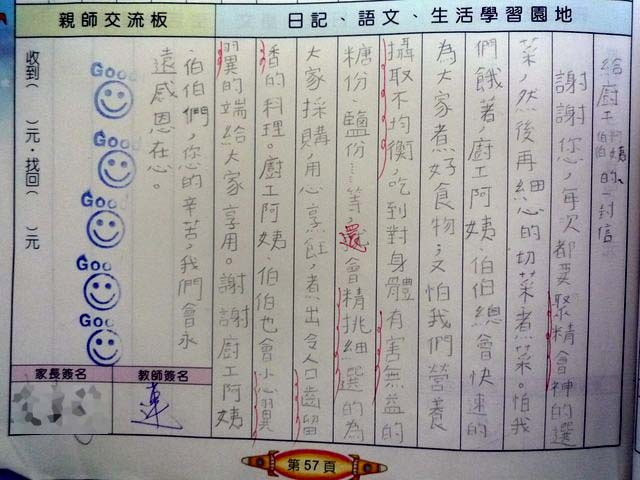 日記、語文、生活學習園地
給廚工阿姨伯伯的一封信
謝謝您，每次都要聚精會神的選
菜，然後再細心的切菜煮菜。怕我
們餓著，廚工阿姨、伯伯總會快速的
為大家煮好食物，又怕我們營養
攝取不均衡，吃到對身體有害無益的
糖份、鹽份…等，還會精挑細選的為
大家採購，用心烹飪，煮出令人口齒留
香的料理。廚工阿姨、伯伯也會小心翼
翼的端給大家享用。謝謝廚工阿姨
、伯伯們，您的辛苦，我們會永
遠感恩在心。
親師交流板
Good
Good
Good
Good
Good
收到（　　）元，找回（　　）元
教師簽名
連
家長簽名
第57頁